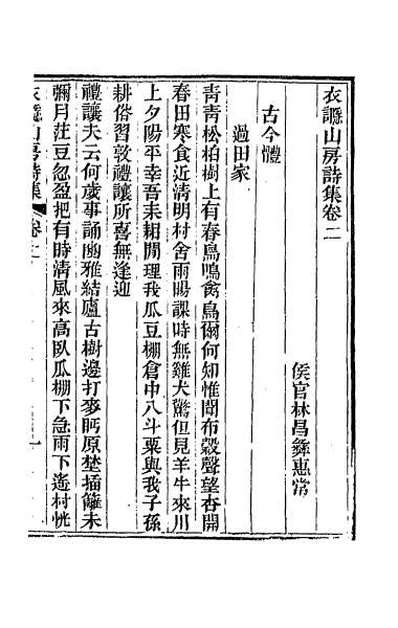 衣讔山房詩集卷二
侯官林昌彝惠常
古今體
過田家
青青松柏樹上有春鳥鳴禽鳥爾何知惟聞布穀聲望杏開
春田寒食近清明村舍雨暘課時無雞犬驚但見羊牛來川
上夕陽平幸吾耒耜閒理我瓜豆棚倉中八斗粟與我子孫
耕俗習敦禮讓所喜無逢迎
禮讓夫云何歲事誦豳雅結廬古樹邊打麥眄原埜插籬未
彌月荘豆忽盈把有時清風來高臥瓜棚下急雨下遙村恍
衣讔山房詩集 卷二 一